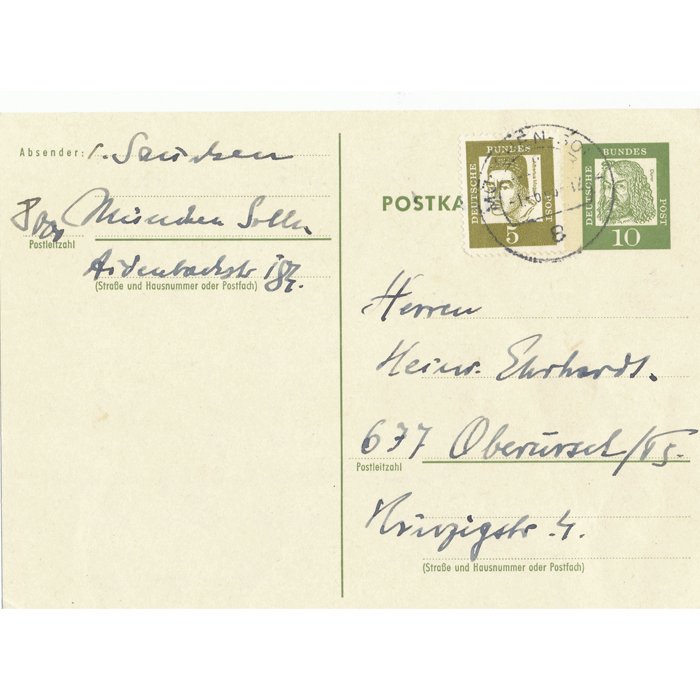 Absender: v. Sanden
8000 München Solln
Postleitzahl
Aidenbachstr
(Straße und Hausnummer oder Postfach)
POSTKA
DEUTSCHE BUNDES POST
5
DEUTSCHE BUNDES POST
10
8
Herren
Heinr. Ehrhardt.
637 Oberursel/Ts.
Postleitzahl
Kinzigstr. 4.
(Straße und Hausnummer oder Postfach)